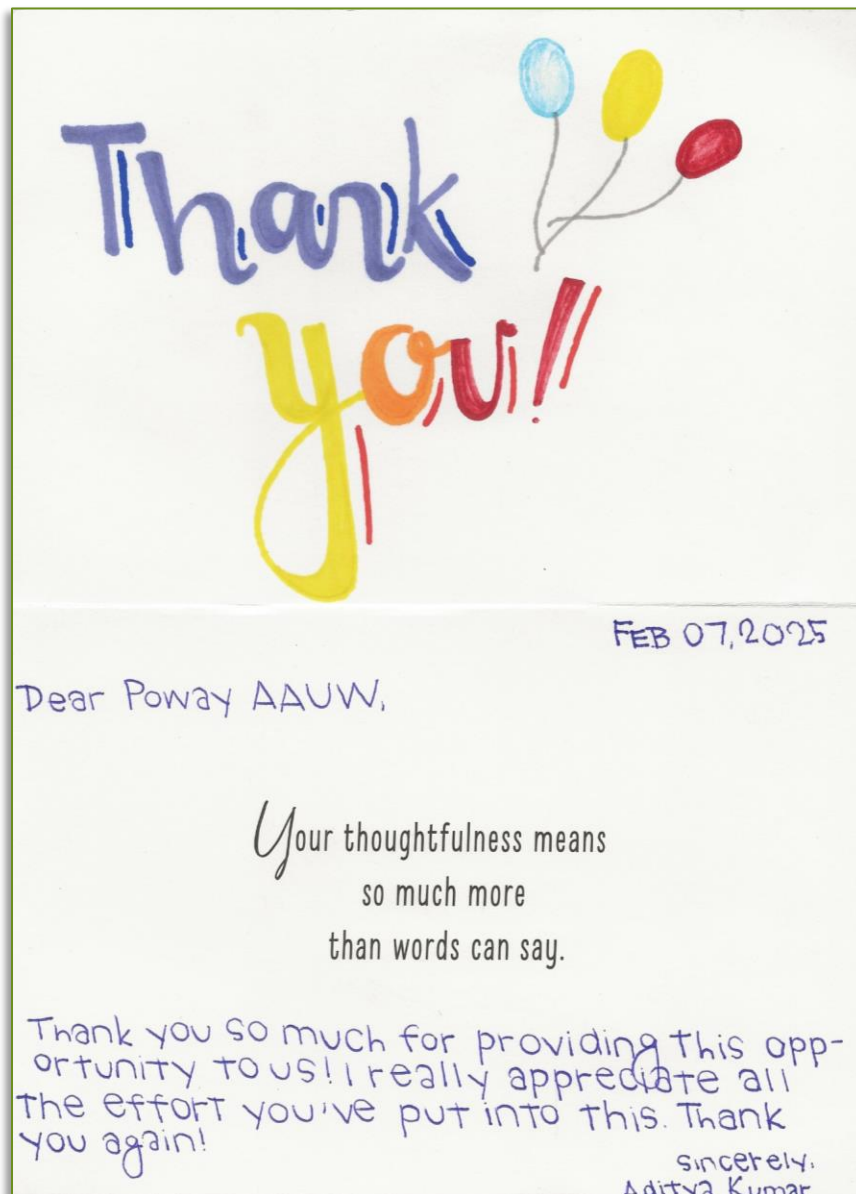 Thank
you!!
FEB 07, 2025
Dear Poway AAUW,
Your thoughtfulness means
so much more
than words can say.
Thank you so much for providing this opp-
ortunity to us! I really appreciate all
the effort you've put into this. Thank
you again!
sincerely,
Aditya Kumar